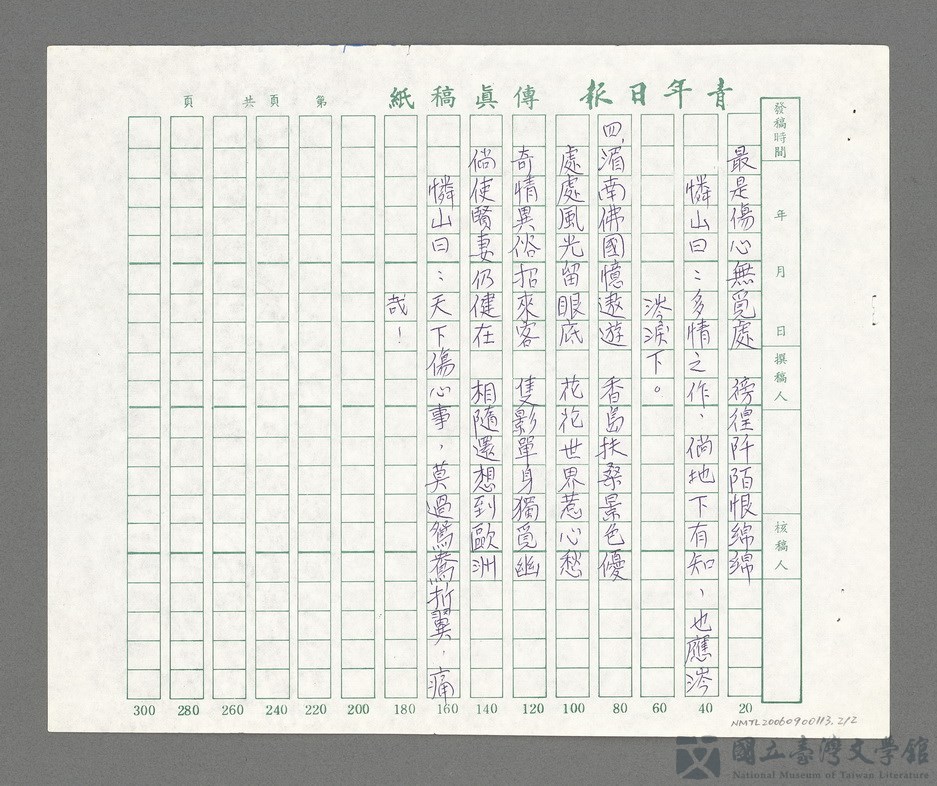 青年日報 傳眞稿紙 第 頁共 頁
發稿時間 年 月 日 撰稿人 核稿人
最是傷心無覓處 徬徨阡陌恨綿綿
憐山曰：多情之作，倘地下有知，也應涔
涔淚下。
四、湄南佛國憶遨遊 香島扶桑景色優
處處風光留眼底 花花世界惹心愁
奇情異俗招來客 隻影單身獨覓幽
倘使賢妻仍健在 相隨還想到歐洲
憐山曰：天下傷心事，莫過鴛鴦折翼，痛
哉！
300 280 260 240 220 200 180 160 140 120 100 80 60 40 20
NMTL20060900113.2/2
國立臺灣文學館
National Museum of Taiwan Literature